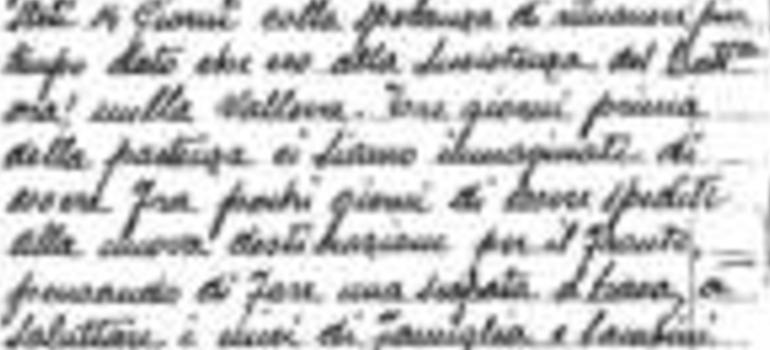 14 Giorni colla speranza di rimanere più
tempo dato che ero alla Sussistenza del Batt
ma! nella Vallona. Tre giorni prima
della partenza ci siamo immaginati di
essere fra pochi giorni di essere spediti
alla nuova destinazione per il fronte,
pensando di fare una scapata a casa, a
saluttare i miei di Famiglia e bambini